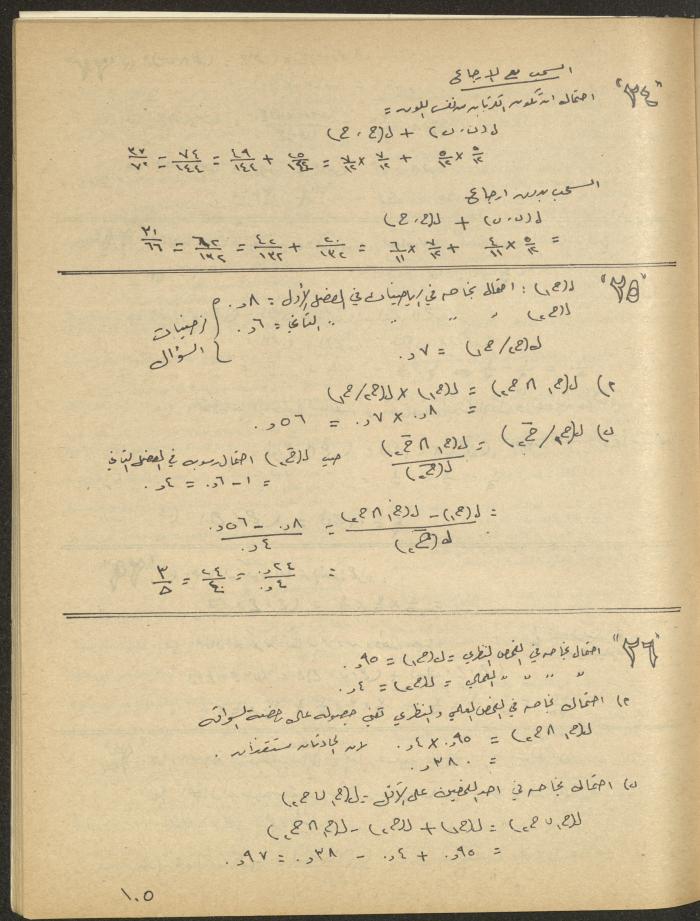 "٣٤" السحب مع الارجاع
احتمال ان تكون الكرتان من نفس اللون =
ل(ن، ن) + ل(ح، ح)
٥/١٢ × ٥/١٢ + ٧/١٢ × ٧/١٢ = ٢٥/١٤٤ + ٤٩/١٤٤ = ٧٤/١٤٤ = ٣٧/٧٢
السحب بدون ارجاع
ل(ن، ن) + ل(ح، ح)
= ٥/١٢ × ٤/١١ + ٧/١٢ × ٦/١١ = ٢٠/١٣٢ + ٤٢/١٣٢ = ٦٢/١٣٢ = ٣١/٦٦
"٣٥" ل(ح١) : احتمال نجاحه في الرياضيات في الفصل الأول = ٨ر٠
ل(ح٢) " " " " الثاني = ٦ر٠
} من معطيات السؤال
ل(ح٢/ح١) = ٧ر٠
٢) ل(ح١ ∩ ح٢) = ل(ح١) × ل(ح٢/ح١)
= ٨ر٠ × ٧ر٠ = ٥٦ر٠
ب) ل(ح١/ح̅٢) = ل(ح١ ∩ ح̅٢)/ل(ح̅٢) حيث ل(ح̅٢) احتمال رسوبه في الفصل الثاني
= ١ - ٦ر٠ = ٤ر٠
= ل(ح١) - ل(ح١ ∩ ح٢)/ل(ح̅٢) = ٨ر٠ - ٥٦ر٠/٤ر٠
= ٢٤ر٠/٤ر٠ = ٢٤/٤٠ = ٣/٥
"٣٦" احتمال نجاحه في الفحص النظري = ل(ح١) = ٩٥ر٠
" " " " العملي = ل(ح٢) = ٤ر٠
٢) احتمال نجاحه في الفحص العملي والنظري تعني حصوله على رخصة السواقة
ل(ح١ ∩ ح٢) = ٩٥ر٠ × ٤ر٠ لان الحادثان مستقلان .
= ٣٨٠ر٠
ب) احتمال نجاحه في احد الفحصين على الأقل = ل(ح١ ∪ ح٢)
ل(ح١ ∪ ح٢) = ل(ح١) + ل(ح٢) - ل(ح١ ∩ ح٢)
= ٩٥ر٠ + ٤ر٠ - ٣٨ر٠ = ٩٧ر٠
١٠٥